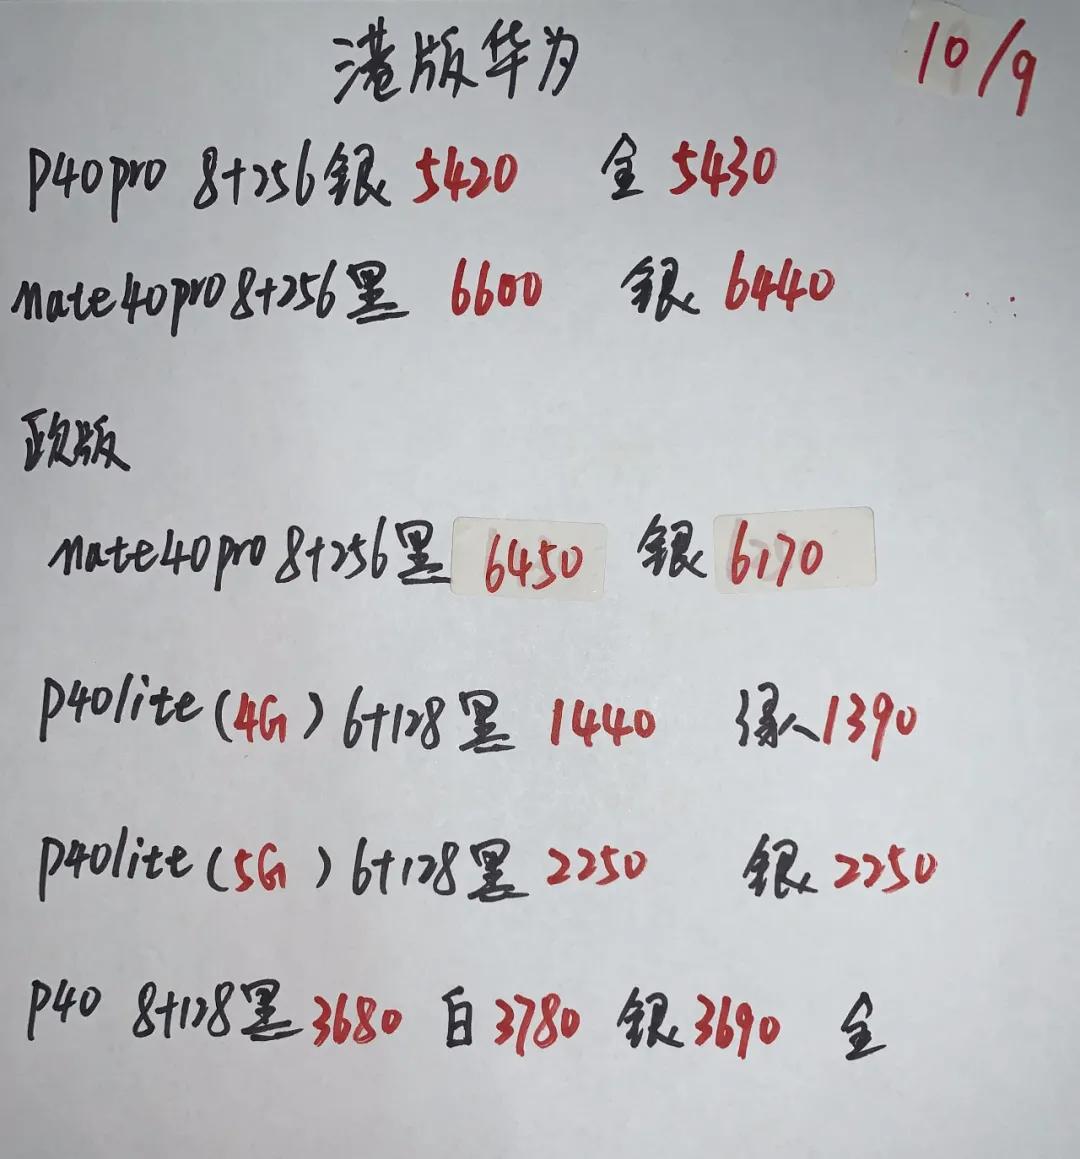 港版华为 10/9
P40pro 8+256银 5420 金 5430
mate40pro 8+256黑 6600 银 6440
欧版
mate40pro 8+256黑 6450 银 6170
P40lite(4G) 6+128黑 1440 绿 1390
p40lite(5G) 6+128黑 2250 银 2250
P40 8+128黑 3680 白 3780 银 3690 金